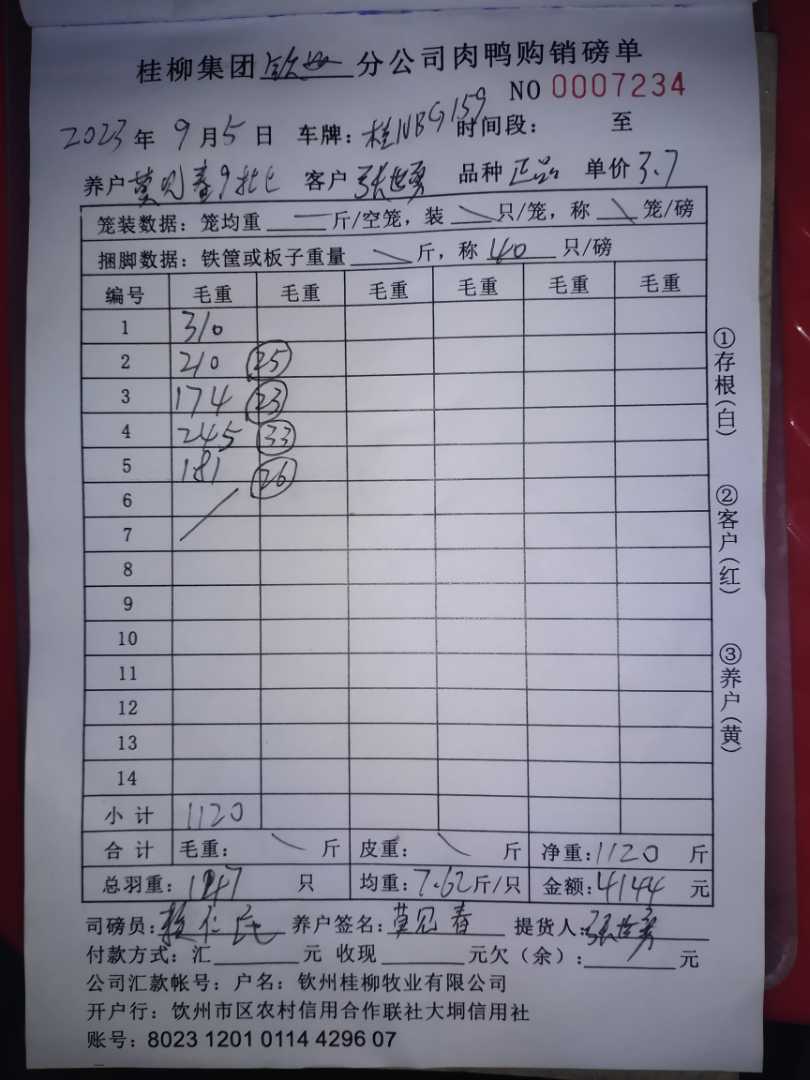 桂柳集团钦州分公司肉鸭购销磅单
NO 0007234
2023年9月5日 车牌：桂NBG159 时间段： 至
养户莫冠春9批 客户张世勇 品种正品 单价3.7
笼装数据：笼均重 斤/空笼，装 只/笼，称 笼/磅
捆脚数据：铁筐或板子重量 斤，称40只/磅
编号 毛重 毛重 毛重 毛重 毛重 毛重
1 310
2 210 25
3 174 23
4 245 33
5 181 26
6
7
8
9
10
11
12
13
14
小计 1120
合计 毛重： 斤 皮重： 斤 净重：1120斤
总羽重：147只 均重：7.62斤/只 金额：4144元
司磅员： 养户签名：莫冠春 提货人：张世勇
付款方式：汇 元 收现 元欠（余）： 元
公司汇款帐号：户名：钦州桂柳牧业有限公司
开户行：饮州市区农村信用合作联社大垌信用社
账号：8023 1201 0114 4296 07
①存根（白）
②客户（红）
③养户（黄）